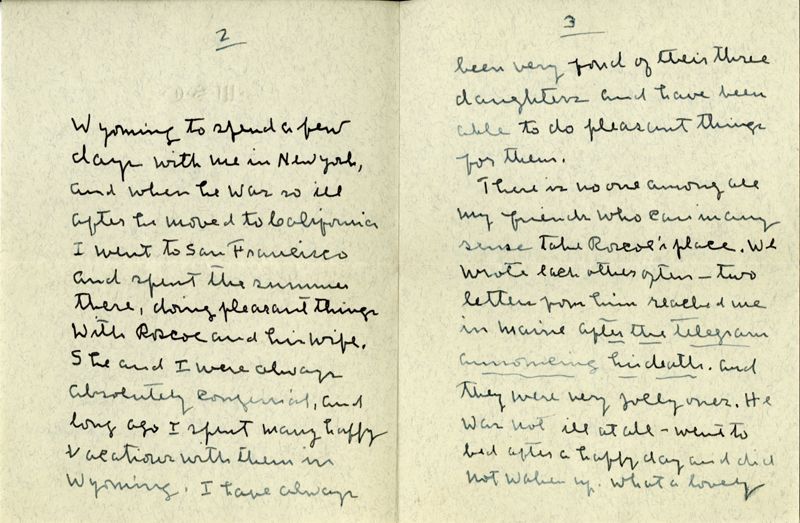 2
Wyoming to spend a few
days with me in New York,
and when he was so ill
after he moved to California
I went to San Francisco
and spent the summer
there, doing pleasant things
with Roscoe and his wife.
She and I were always
absolutely congenial, and
long ago I spent many happy
vacations with them in
Wyoming. I have always
3
been very fond of their three
daughters and have been
able to do pleasant things
for them.
There is no one among all
my friends who can in any
sense take Roscoe's place. We
wrote each other often — two
letters from him reached me
in Maine after the telegram
announcing his death. And
they were very jolly ones. He
was not ill at all — went to
bed after a happy day and did
not waken up. What a lovely